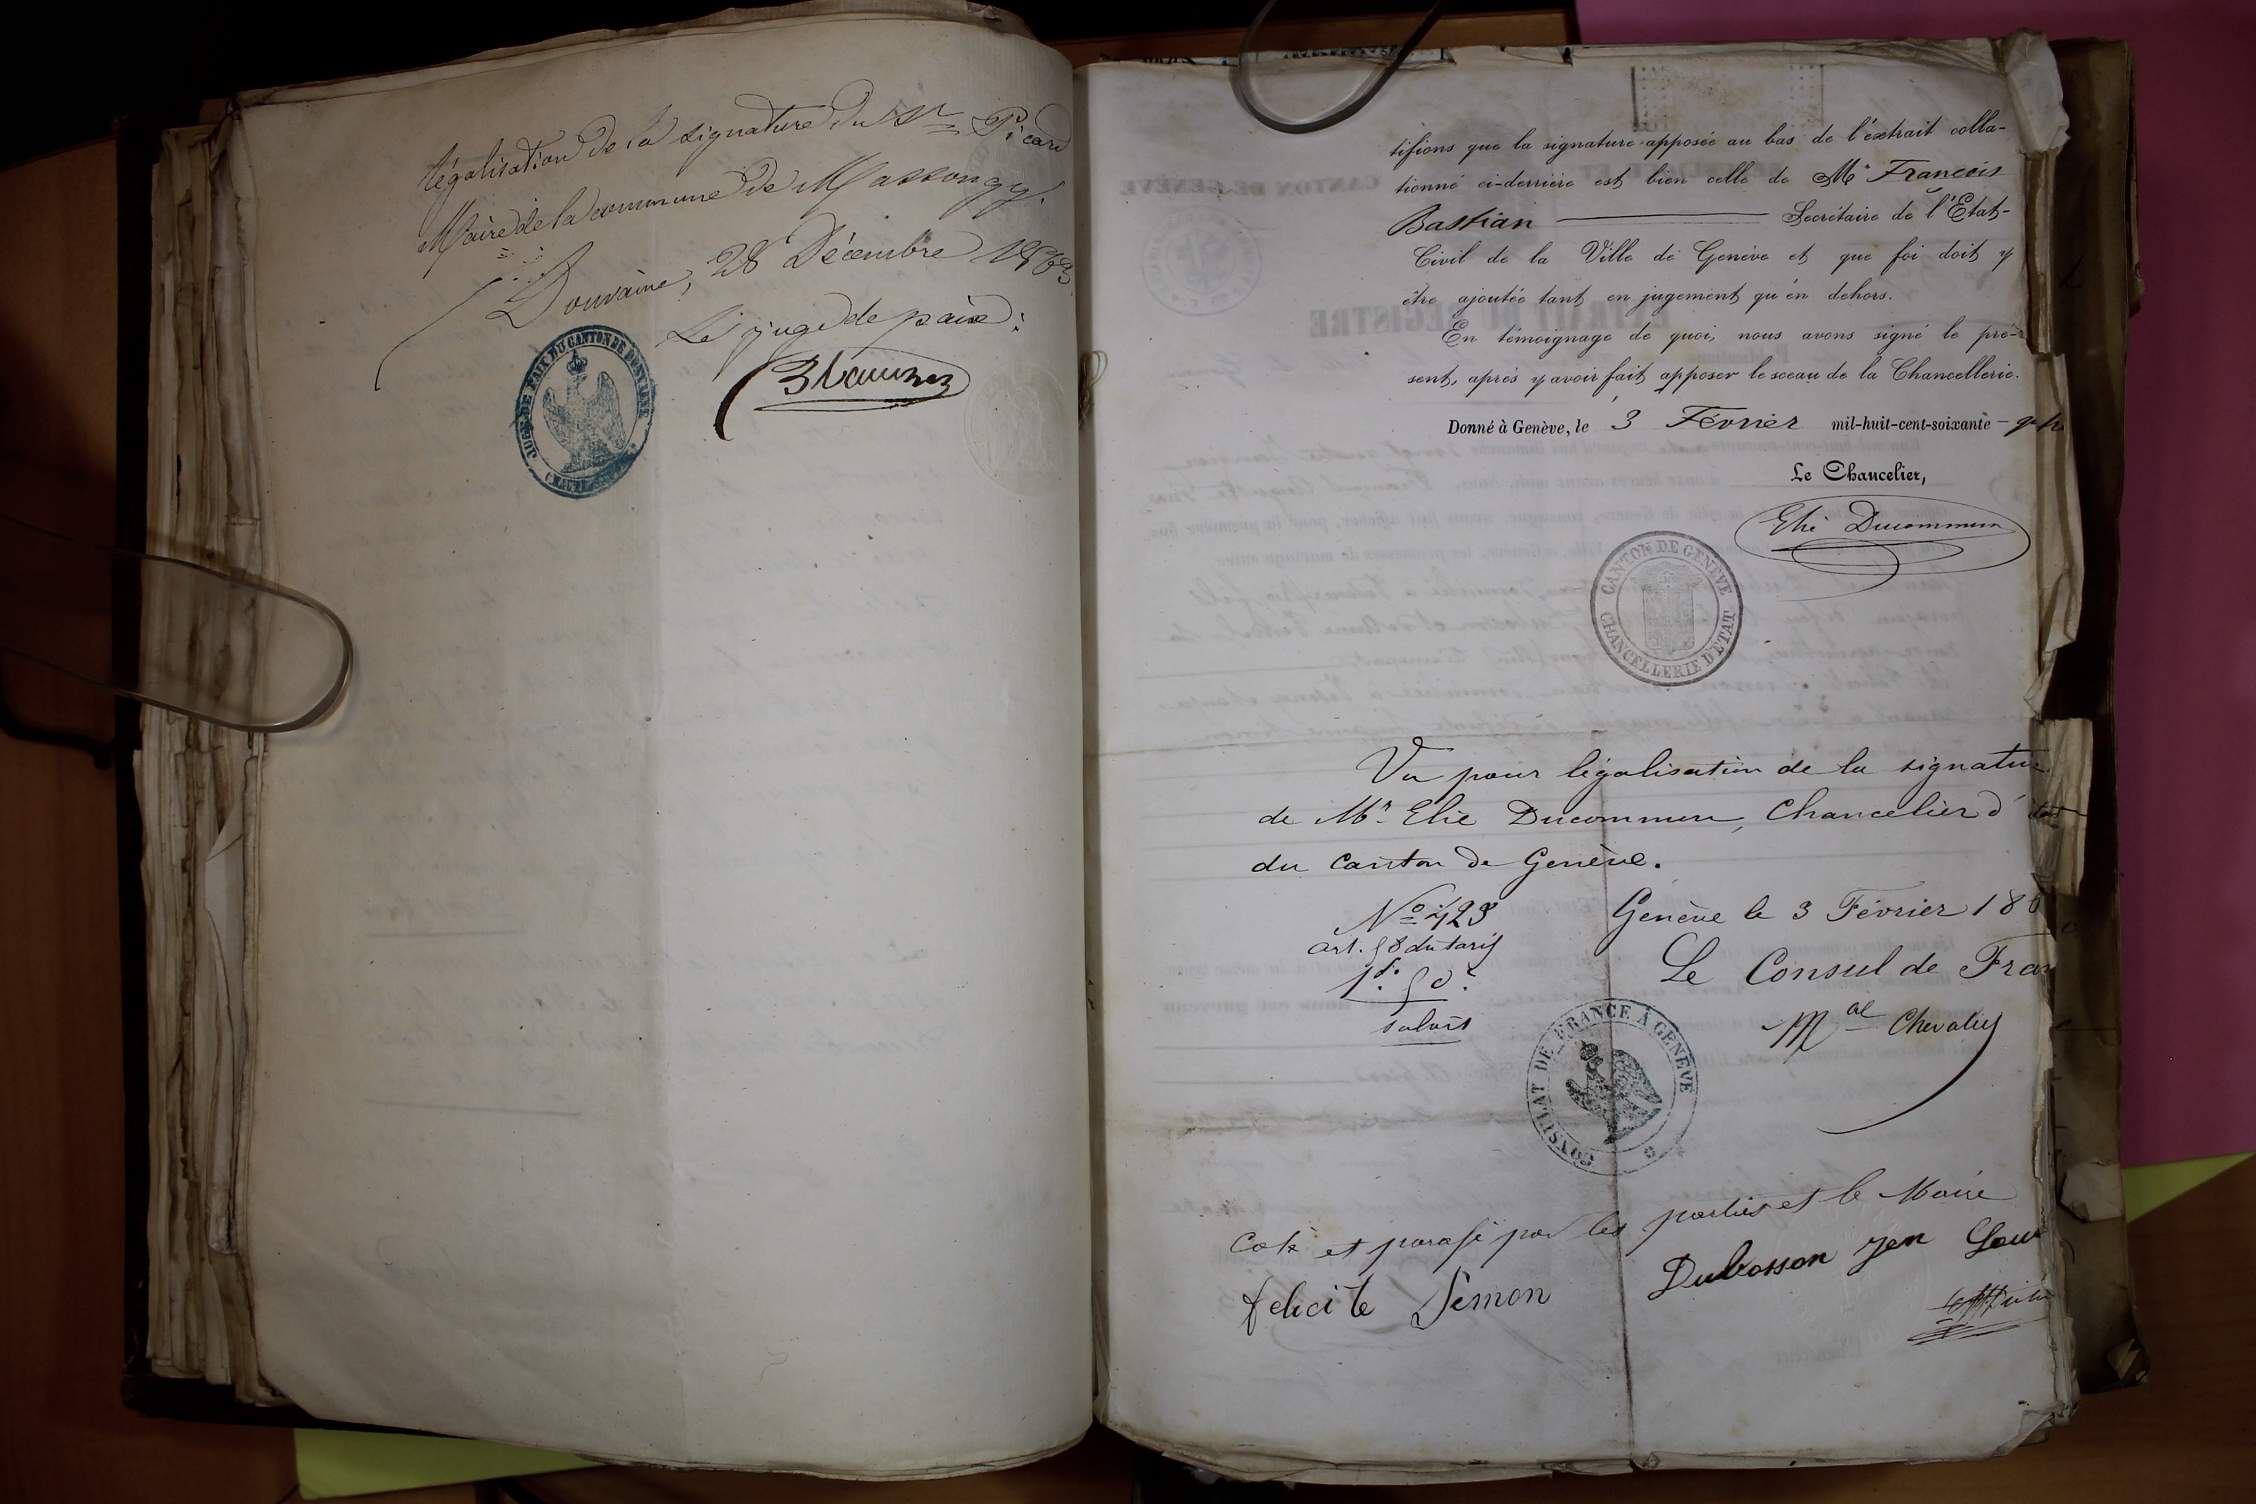 légalisation de la signature du Sr Picard
Maire de la commune de Massongy.
Douvaine, 28 Décembre 1863
Le juge de paix :
JUGE DE PAIX DU CANTON DE DOUVAINE
tifions que la signature apposée au bas de l'extrait colla-
tionné ci-derrière est bien celle de Mr François
Bastian Secrétaire de l'Etat-
Civil de la Ville de Genève et que foi doit y
être ajoutée tant en jugement qu'en dehors.
En témoignage de quoi, nous avons signé le pré-
sent, après y avoir fait apposer le sceau de la Chancellerie.
Donné à Genève, le 3 Février mil-huit-cent-soixante-
Le Chancelier,
Elie Ducommun
CANTON DE GENÈVE
CHANCELLERIE D'ÉTAT
Vu pour légalisation de la signature
de Mr Elie Ducommun, Chancelier d'état
du canton de Genève.
No 423
art. 58 du tarif
1f. 50c.
Genève le 3 Février 186
Le Consul de Fran
Mal Chevalier
CONSULAT DE FRANCE À GENÈVE
Coté et parafé par les parties et le Maire
felicite Simon
Dubosson Jen Lou